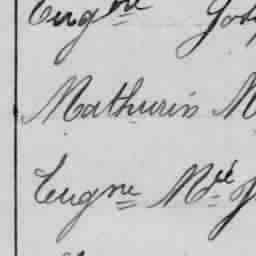 Eugène Jos
Mathurin M
Eugne Mie J